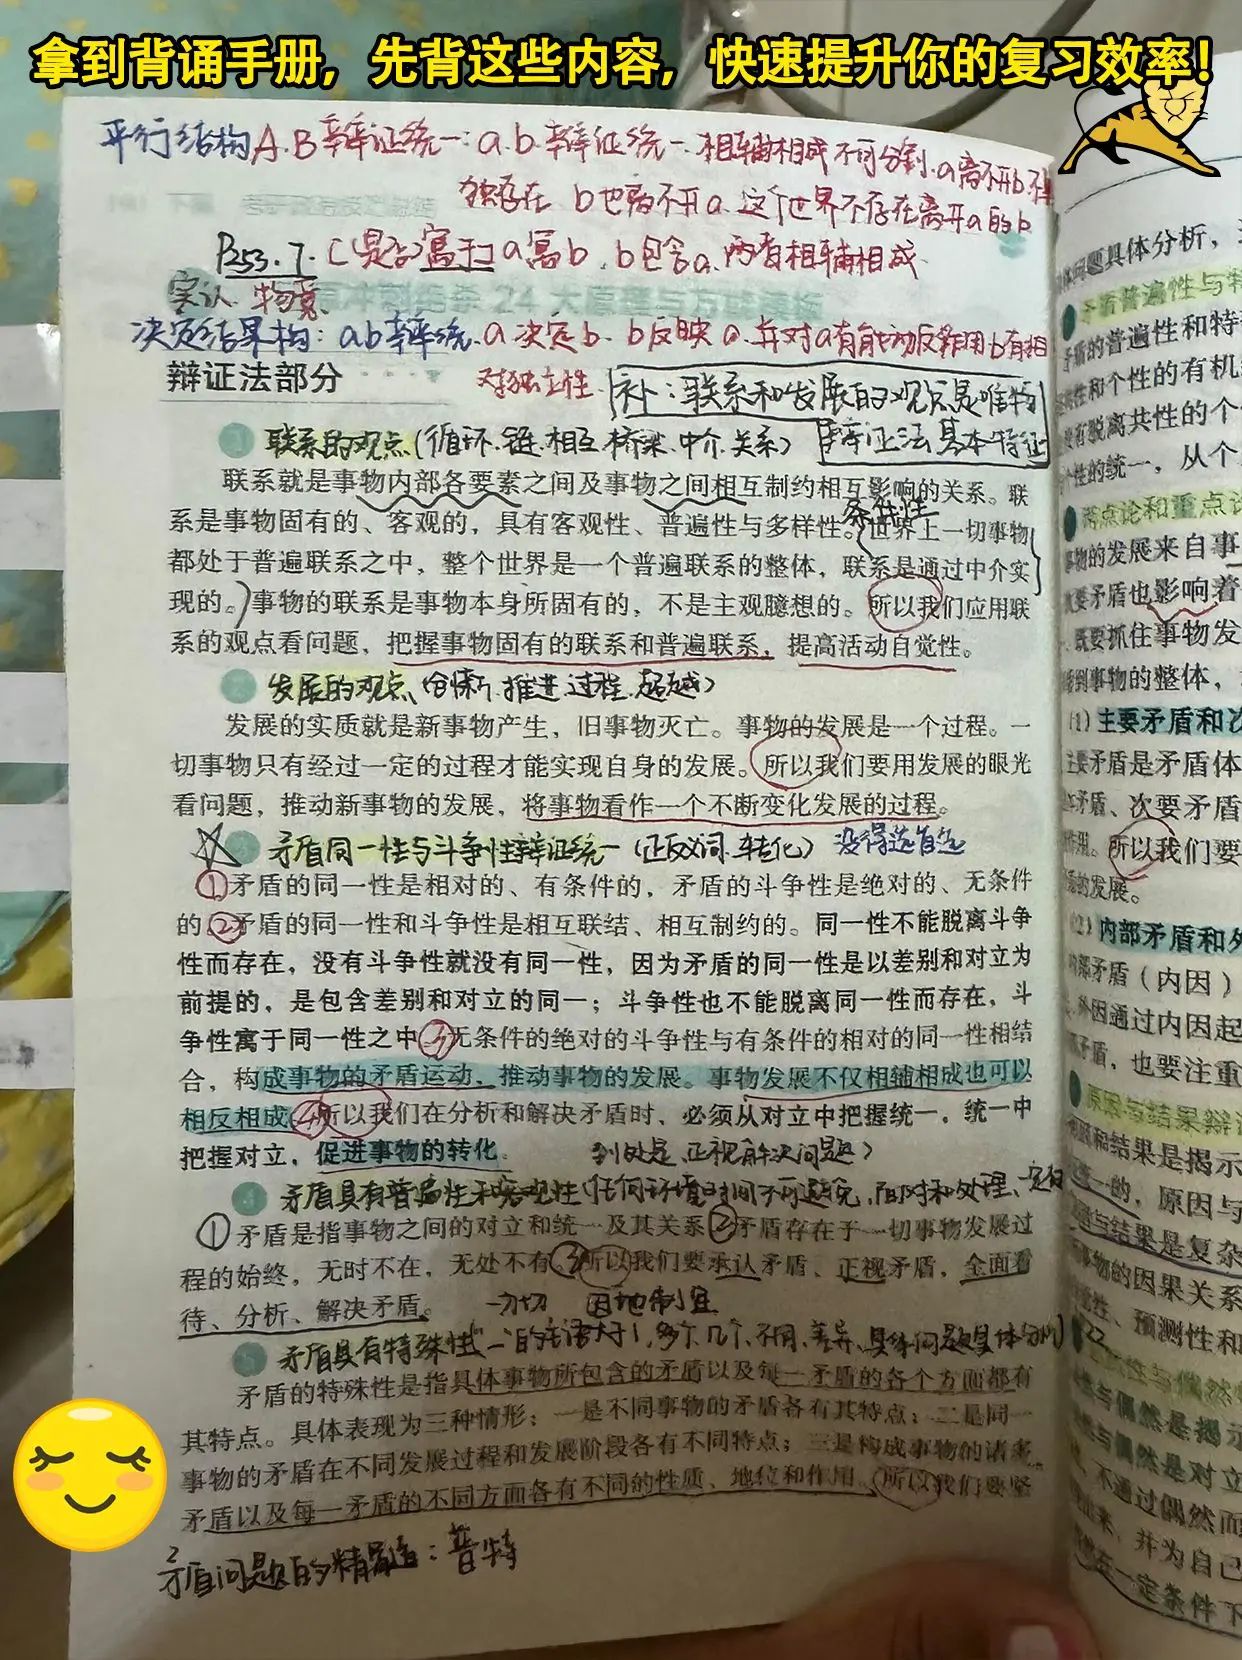 拿到背诵手册，先背这些内容，快速提升你的复习效率！
平行结构A.B辩证统一：a.b.辩证统一.相辅相成不可分割.a离不开b不
独存在 b也离不开a.这个世界不存在离开a的b
P253.7.(是否)寓于：a寓b.b包含a.两者相辅相成.
实认.物意
冲刺结条24大原理与方法论
决定结果构：ab辩统.a决定b.b反映a.并对a有能动反作用b有相
对独立性.
补：联系和发展的观点是唯物
辩证法部分
辩证法基本特征
1 联系的观点(循环.链.相互.桥梁.中介.关系)
联系就是事物内部各要素之间及事物之间相互制约相互影响的关系。联
条件性
系是事物固有的、客观的，具有客观性、普遍性与多样性。世界上一切事物
都处于普遍联系之中，整个世界是一个普遍联系的整体，联系是通过中介实
现的。事物的联系是事物本身所固有的，不是主观臆想的。所以我们应用联
系的观点看问题，把握事物固有的联系和普遍联系，提高活动自觉性。
2 发展的观点(创新.推进.过程.超越)
发展的实质就是新事物产生，旧事物灭亡。事物的发展是一个过程。一
切事物只有经过一定的过程才能实现自身的发展。所以我们要用发展的眼光
看问题，推动新事物的发展，将事物看作一个不断变化发展的过程。
3 矛盾同一性与斗争性辩证统一(正反义词.转化) 没得选自选
①矛盾的同一性是相对的、有条件的，矛盾的斗争性是绝对的、无条件
的②矛盾的同一性和斗争性是相互联结、相互制约的。同一性不能脱离斗争
性而存在，没有斗争性就没有同一性，因为矛盾的同一性是以差别和对立为
前提的，是包含差别和对立的同一；斗争性也不能脱离同一性而存在，斗
争性寓于同一性之中③无条件的绝对的斗争性与有条件的相对的同一性相结
合，构成事物的矛盾运动，推动事物的发展。事物发展不仅相辅相成也可以
相反相成④所以我们在分析和解决矛盾时，必须从对立中把握统一，统一中
把握对立，促进事物的转化。 到处是.正视解决问题)
4 矛盾具有普遍性和客观性(任何环境.时间.不可避免.面对和处理.一定
①矛盾是指事物之间的对立和统一及其关系②矛盾存在于一切事物发展过
程的始终，无时不在，无处不有③所以我们要承认矛盾、正视矛盾，全面看
待、分析、解决矛盾。 一切 因地制宜
5 矛盾具有特殊性("一"的主语大于1.多个.几个.不同.差异.具体问题具体分析)
矛盾的特殊性是指具体事物所包含的矛盾以及每一矛盾的各个方面都有
其特点。具体表现为三种情形：一是不同事物的矛盾各有其特点；二是同一
事物的矛盾在不同发展过程和发展阶段各有不同特点；三是构成事物的诸多
矛盾以及每一矛盾的不同方面各有不同的性质、地位和作用。所以我们要紧
矛盾问题的精髓：普特
体问题具体分析，
矛盾普遍性与特
矛盾的普遍性和特
性和个性的有机
有脱离共性的个
个性的统一，从个
两点论和重点论
事物的发展来自事
次要矛盾也影响着
既要抓住事物发
看到事物的整体，
(1)主要矛盾和次
主要矛盾是矛盾体
矛盾、次要矛盾
作用。所以我们要
的发展。
(2)内部矛盾和外
内部矛盾（内因）
外因通过内因起
矛盾，也要注重
原因与结果辩证
原因和结果是揭示
统一的，原因与
与结果是复杂
事物的因果关系
性、预测性和
22
性与偶然
与偶然是揭示
与偶然是对立
不通过偶然而
出来，并为自己
在一定条件下